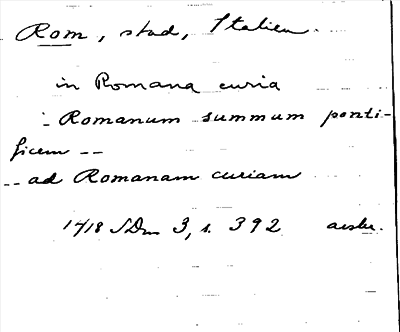 Rom, stad, Italien.
in Romana curia
- Romanum summum ponti-
ficem --
-- ad Romanam curiam
1418 SDm 3, s. 392